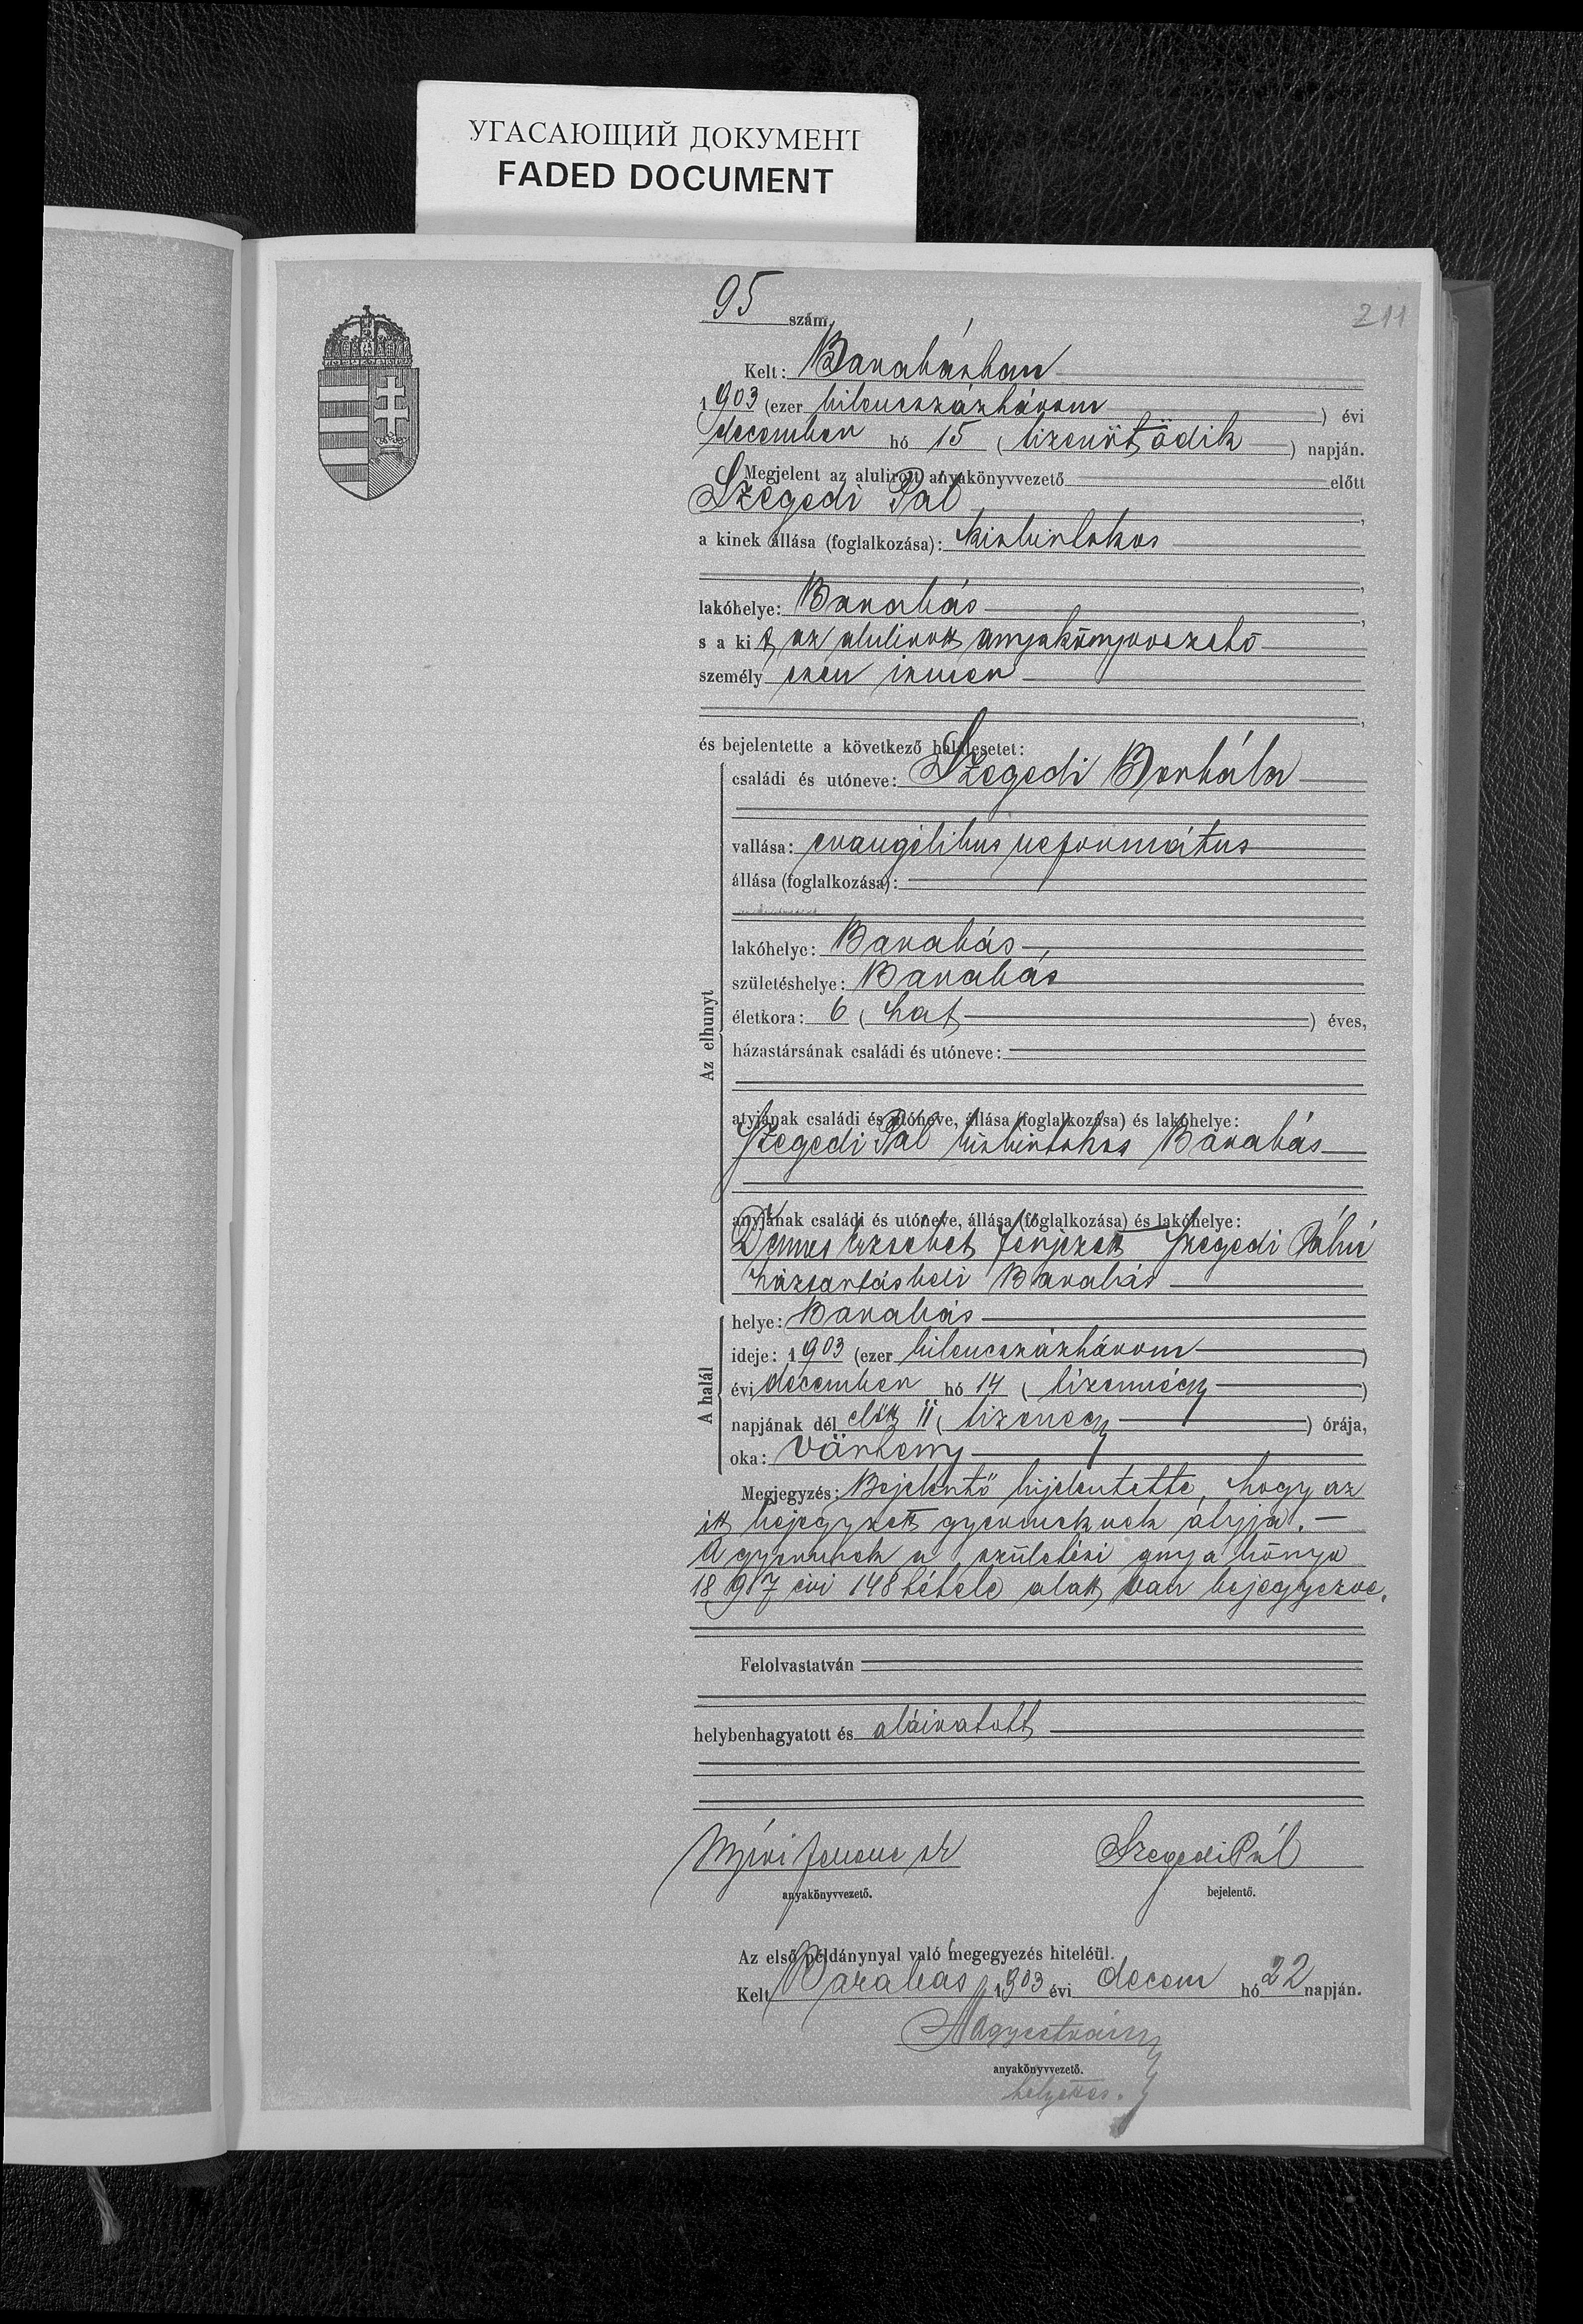 УГАСАЮЩИЙ ДОКУМЕНТ
FADED DOCUMENT
211
95 szám.
Kelt: Barabásban
1903 (ezer kilencszázhárom) évi
december hó 15 (tizenötödik) napján.
Megjelent az alulirott anyakönyvvezető előtt
Szegedi Pál,
a kinek állása (foglalkozása): kisbirtokos
lakóhelye: Barabás,
s a kit az alulirott anyakönyvvezető
személyesen ismer
és bejelentette a következő halálesetet:
Az elhunyt
családi és utóneve: Szegedi Borbála
vallása: evangelikus református
állása (foglalkozása):
lakóhelye: Barabás
születéshelye: Barabás
életkora: 6 (hat) éves,
házastársának családi és utóneve:
atyjának családi és utóneve, állása (foglalkozása) és lakóhelye:
Szegedi Pál kisbirtokos Barabás
anyjának családi és utóneve, állása (foglalkozása) és lakóhelye:
Erzsebet férjezett Szegedi Pálné
háztartásbeli Barabás
A halál
helye: Barabás
ideje: 1903 (ezer kilencszázhárom)
évi december hó 14 (tizennégy)
napjának dél előtt 11 (tizenegy) órája,
oka: vörheny
Megjegyzés: Bejelentő kijelentette, hogy az
itt bejegyzett gyermeknek atyja. —
A gyermek a születési anyakönyv
1897 évi 148 tétele alatt van bejegyezve.
Felolvastatván
helybenhagyatott és aláiratott
Ferenc Szegedi Pál
anyakönyvvezető. bejelentő.
Az első példánynyal való megegyezés hiteléül.
Kelt Barabás 1903 évi decem hó 22 napján.
anyakönyvvezető.
helyettes.